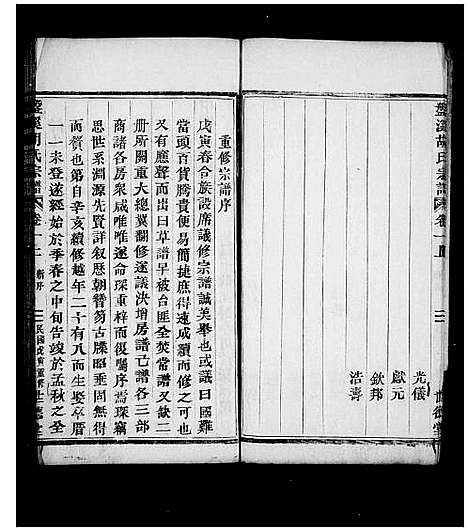 盤溪胡氏宗譜
卷十
光儀
獻元
欽邦
浩壽
重修宗譜序
戊寅春合族設席議修宗譜誠美舉也或議曰國難
當頭百貨騰貴便易簡捷庶得速成續而修之可也
又有應聲而出曰草譜早被台匪全焚常譜又缺二
册所關重大總冀翻修遂議決增房譜亡譜各三部
商諸各房衆咸唯唯遂命琛重梓而復囑序焉琛竊
思世系淵源先賢詳叙歷朝贊笏古牒昭垂固無得
而贅也第自辛亥續修越年二十有八而生娶卒厝
一一未登遂經始於季春之中旬告竣於孟秋之全
氏宗譜
卷十二
新序
民國戊寅重修